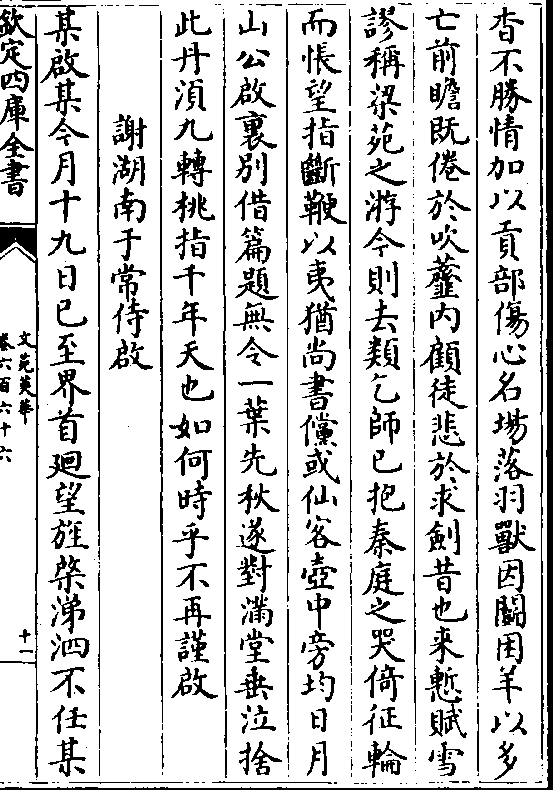 杳不勝情加以貢部傷心名場落羽獸因鬬困羊以多
亡前瞻既倦於吹虀内顧徒悲於求劍昔也来慙賦雪
謬稱梁苑之游今則去類乞師已抱秦庭之哭倚征輪
而悵望指斷鞭以夷猶尚書儻或仙客壺中旁均日月
山公啟裏别借篇題無令一葉先秋遂對滿堂垂泣捨
此丹湏九轉桃指千年天也如何時乎不再謹啟
謝湖南于常侍啟
某啟某今月十九日已至界首廻望旌棨涕泗不任某
欽定四庫全書
文苑英華
卷六百六十六
十一